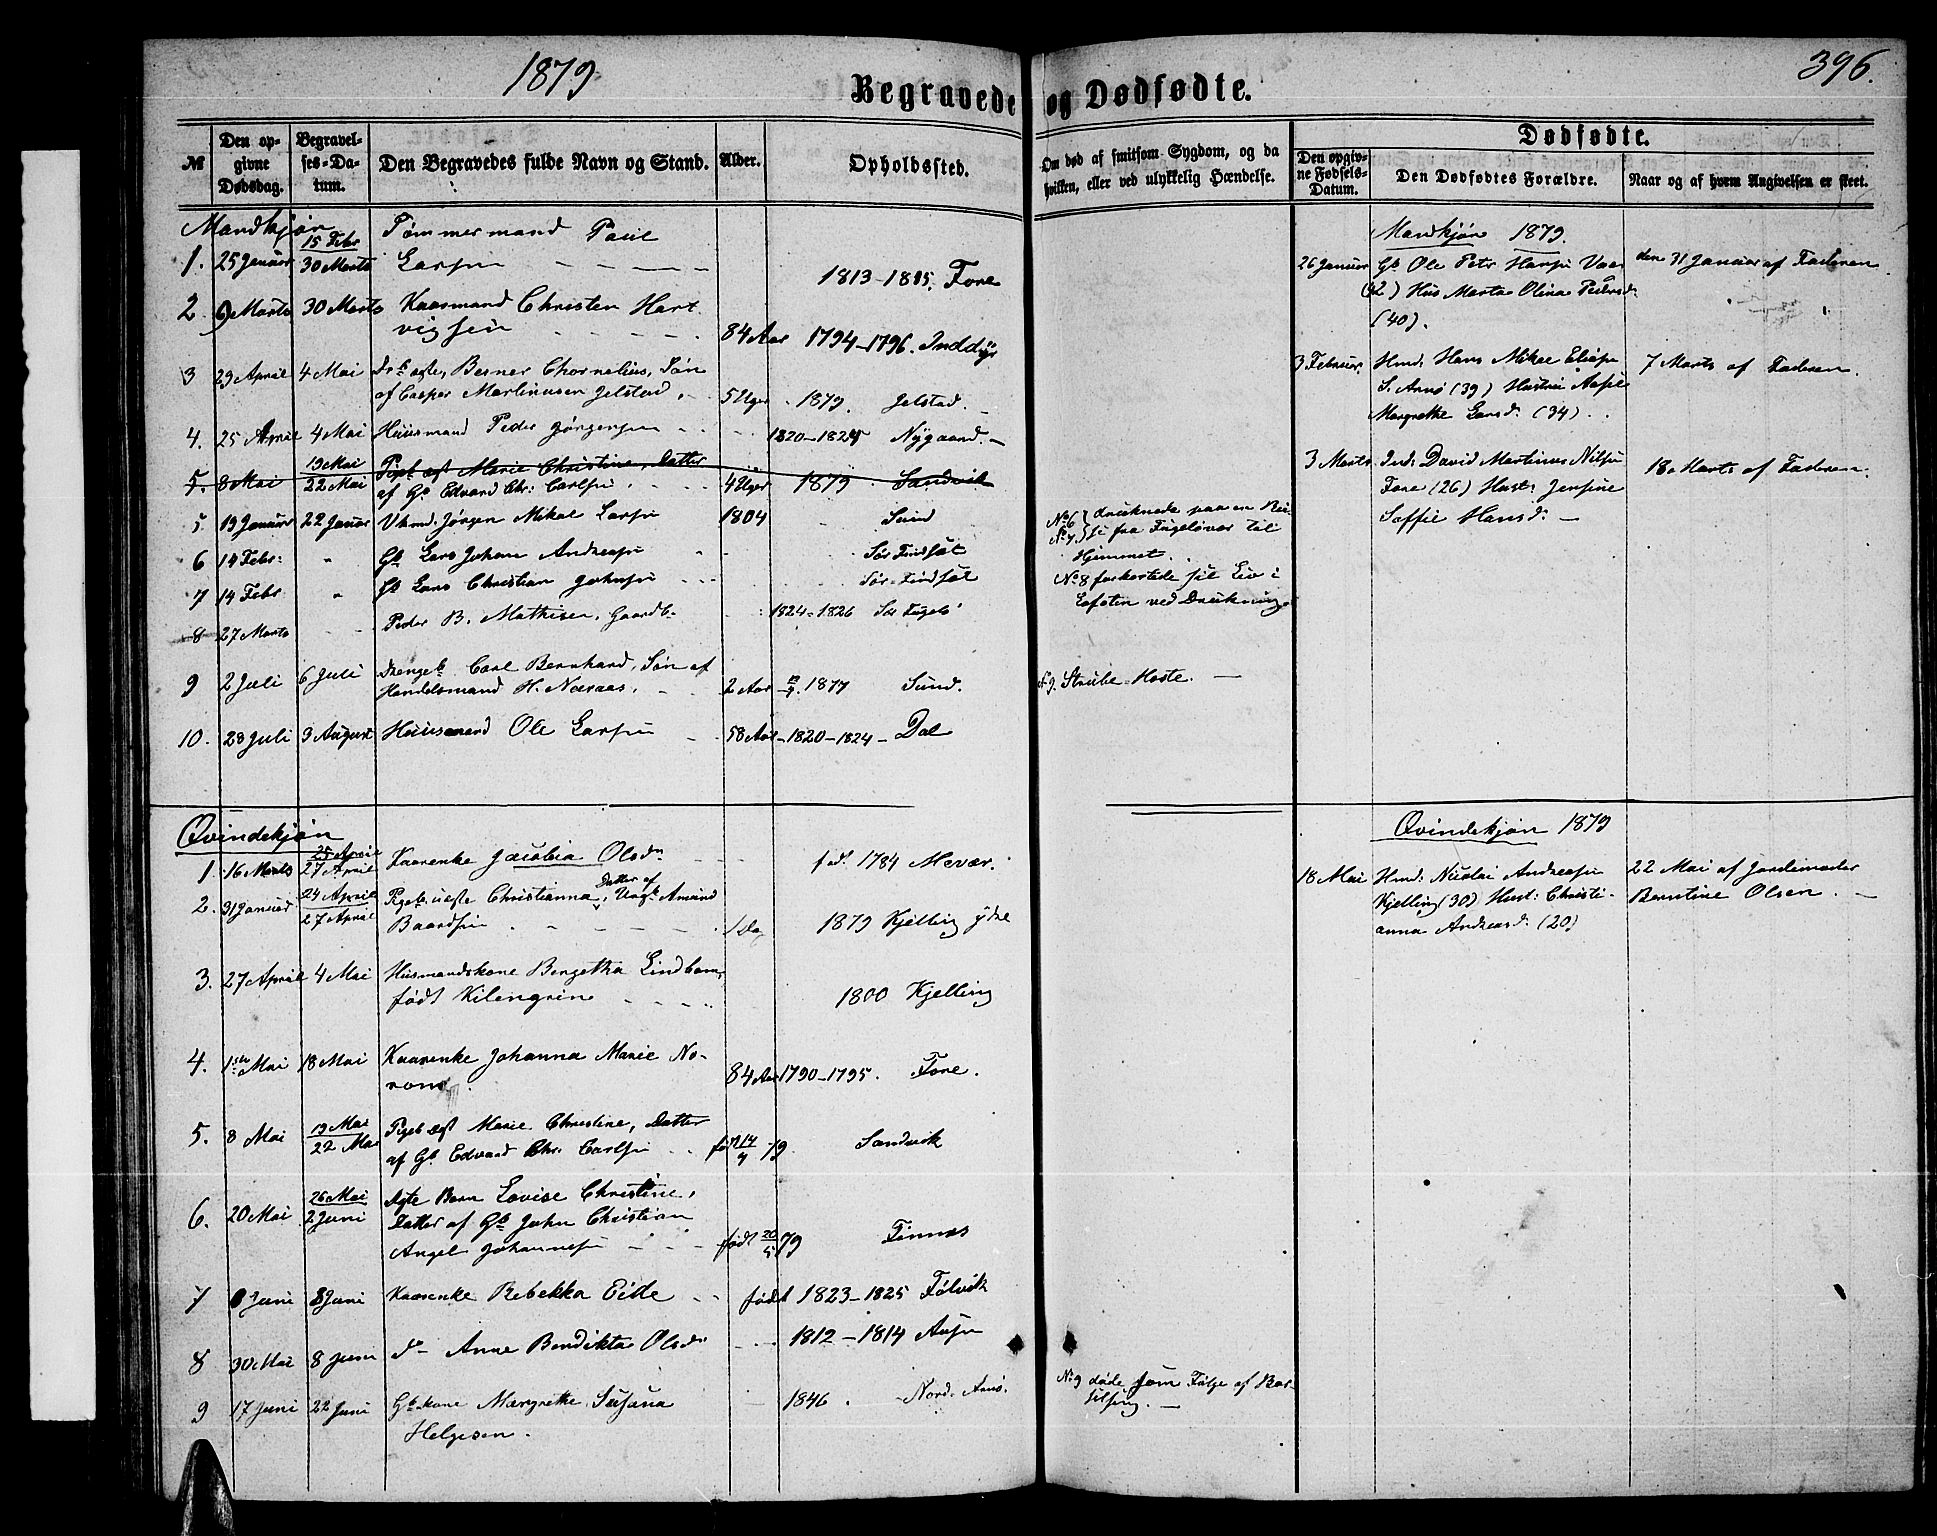 1879
396.
Begravede og Dødfødte.
№
Den opgivne Dødsdag.
Begravelses-Datum.
Den Begravedes fulde Navn og Stand.
Alder.
Opholdssted.
Om død af smitsom Sygdom, og da hvilken, eller ved ulykkelig Hændelse.
Dødfødte.
Den opgivne Fødsels-Datum.
Den Dødfødtes Forældre.
Naar og af hvem Angivelsen er skeet.
Mandkjøn
1. 25 Januar 15 Febr 30 Marts Tømmermand Paul
Larsen 1813-1815. Fore
2. 9 Marts 30 Marts Kaarmand Christen Hart
vigsen 84 Aar 1794-1796. Inddyr
3 29 April 4 Mai Dr.b. ægte, Berner Chornelius, Søn
af Casper Martinusen Jelstad 5 Uger 1879. Jelstad.
4. 25 April 4 Mai Huusmand Peder Jørgensen 1820-1824 Nygaard.
5. 8 Mai 19 Mai 22 Mai Pigeb. æegt Marie Christine, Datter
af Gb. Edvard Chr. Carlsen 4 Uger 1879 Sandvik
5 19 Januar 22 Januar Jørgen Mikal Larsen 1804 Sund
6 14 Febr: " Gb. Lars Johan Andreasen Sør Findsæt
7 14 Febr " Gb. Lars Christian Johnsen Sør-Findsæt
8 27 Marts Peder B. Mathisen, Gaardb. 1824-1826 Sør Fugelø
9 2 Juli 6 Juli Drengeb. Carl Bernhard, Søn af
Handelsmand H. Næraas, 2 Aar 1877 Sund.
10. 28 Juli 3 August Huusmand Ole Larsen 58 Aar 1820-1824 Dal
No 6 No 7 druknede paa en Reise fra Fugeløvær til
Hjemmet.
No 8 forkortede sit Liv i
Lofoten ved Drukning
No 9. Strube-Hoste.
Mandkjøn 1879.
26 Januar Gb. Ole Petr Hansen
(42) Hus Marta Olina Pedersd.
(40).
den 31 Januar af Faderen
3 Februar Hmd. Hans Mikal Eliasen
S. Arnø (39) Hustru
Margrethe Larsd. (34).
7 Marts af Faderen.
3 Marts Ind. David Martinus Nilsen
Fore (26) Hust: Jensine
Soffie Hansd.
18 Marts af Faderen.
Qvindekjøn
1. 16 Marts 25 April 27 April Kaarenke Jacobia Olsdr. fød. 1784 Mevær.
2. 31 Januar 24 April 27 April Pigeb. uægte Christianna, Datter af Amund
Baardsen 1 Dag 1879 Kjelling ydre
3. 27 April 4 Mai Husmandskone Bergetha Lindbom,
født Kilengren 1800 Kjelling
4. 1ste Mai 18 Mai Kaarenke Johanna Marie No-
rom 84 Aar 1790-1795. Fore.
5. 8 Mai 19 Mai 22 Mai Pigeb. ægt Marie Christine, Datter
af Gb. Edvard Chr. Carlsen født 14/4 79. Sandvik
6. 20 Mai 26 Mai 2 Juni Ægte Barn Lovise Christine,
Datter af Gb. John Christian
Angel Johannesen født 20/5 79 Finnæs
7 Juni 8 Juni Kaarenke Rebekka Eide født 1823-1825 Følvik
8 30 Mai 8 Juni do Anne Bendikta Olsdr. 1812-1814
9 17 Juni 22 Juni Gb. kone Margrethe Susana
Helgesen. 1846. Nord. Arnø.
No 9 døde som Følge af Bar-
selseng.
Qvindekjøn 1879
18 Mai Hmd: Nicolai Andreasen
Kjelling (30) Hust: Christi-
anna Andreasd. (20)
22 Mai af Jordemoder
Berntine Olsen.